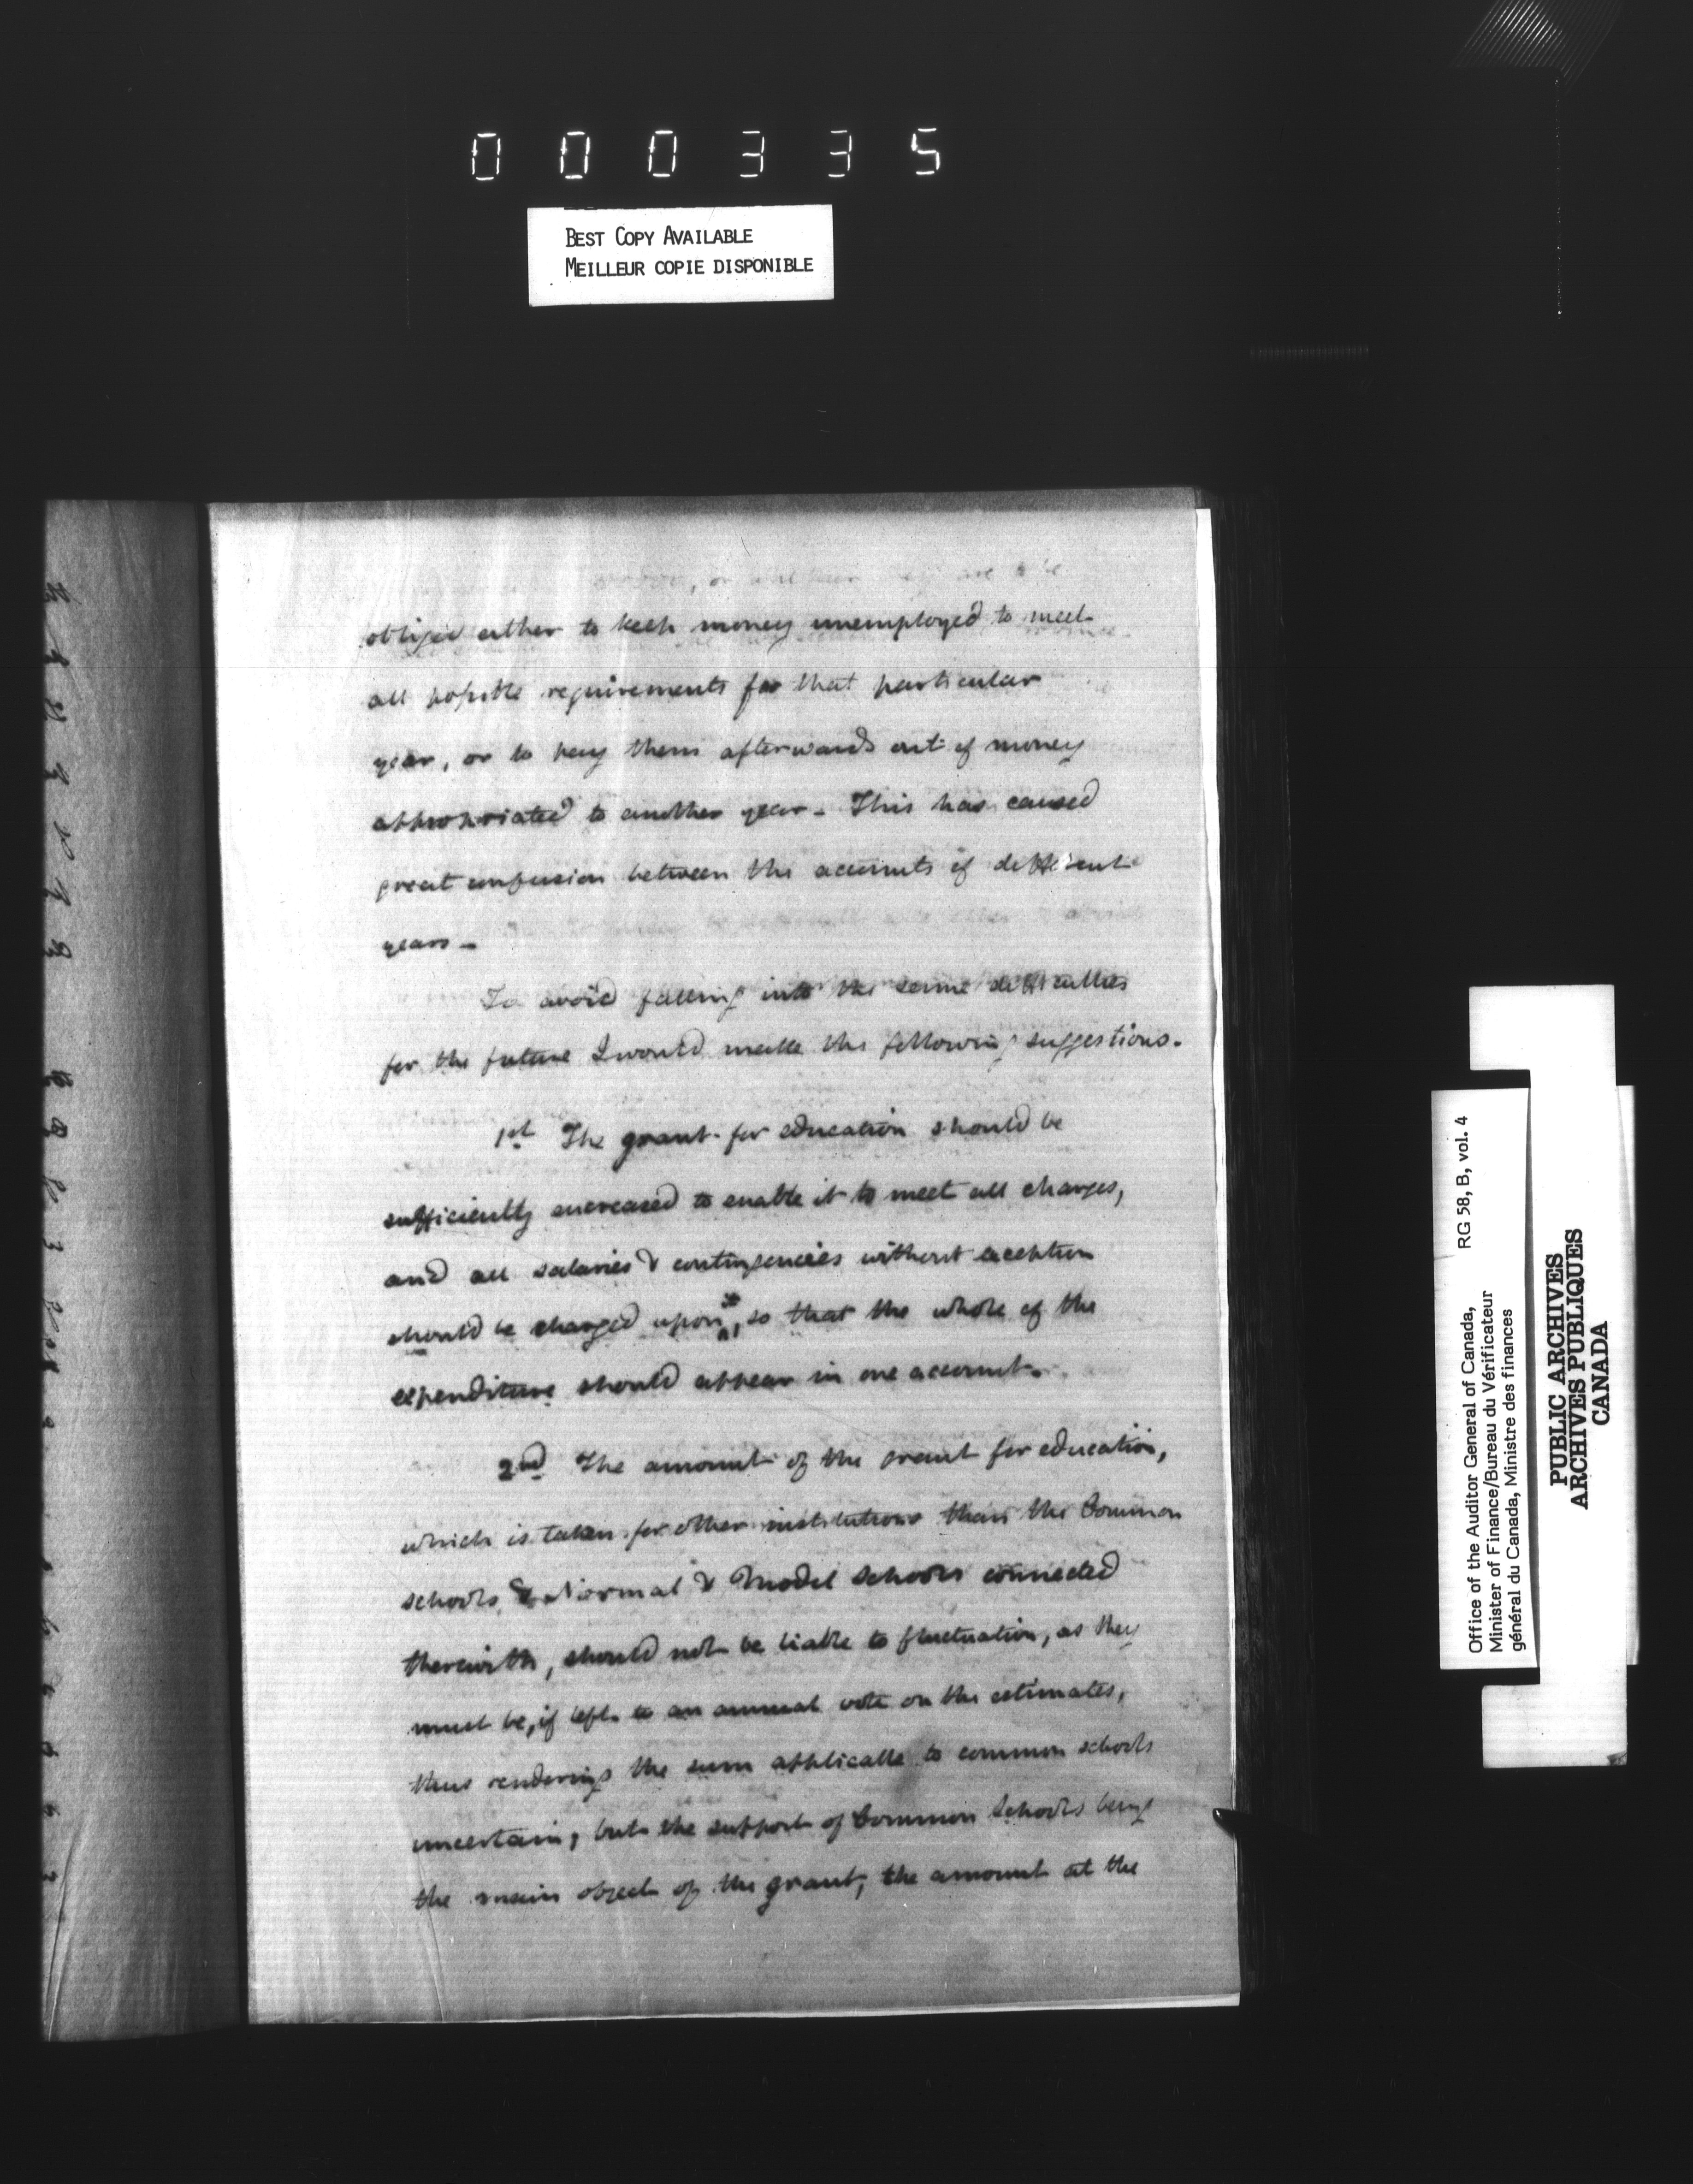 000335
BEST COPY AVAILABLE
MEILLEUR COPIE DISPONIBLE
obliged either to keep money unemployed to meet
all possible requirements for that particular
year, or to pay them afterwards out of money
appropriated to another year - This has caused
great confusion between the accounts of different
years -
To avoid falling into the same difficulties
for the future I would make the following suggestions.
1st The grant for education should be
sufficiently encreased to enable it to meet all charges,
and all salaries & contingencies without exception
should be charged upon it, so that the whole of the
expenditure should appear in one account.
2nd The amount of the grant for education,
which is taken for other institutions than the Common
schools, & Normal & Model Schools connected
therewith, should not be liable to fluctuation, as they
must be, if left to an annual vote on the estimates,
thus rendering the sum applicable to common schools
uncertain, but the support of Common Schools being
the main object of the grant, the amount at the
Office of the Auditor General of Canada,
Minister of Finance/Bureau du Vérificateur
général du Canada, Ministre des finances
RG 58, B, vol. 4
PUBLIC ARCHIVES
ARCHIVES PUBLIQUES
CANADA